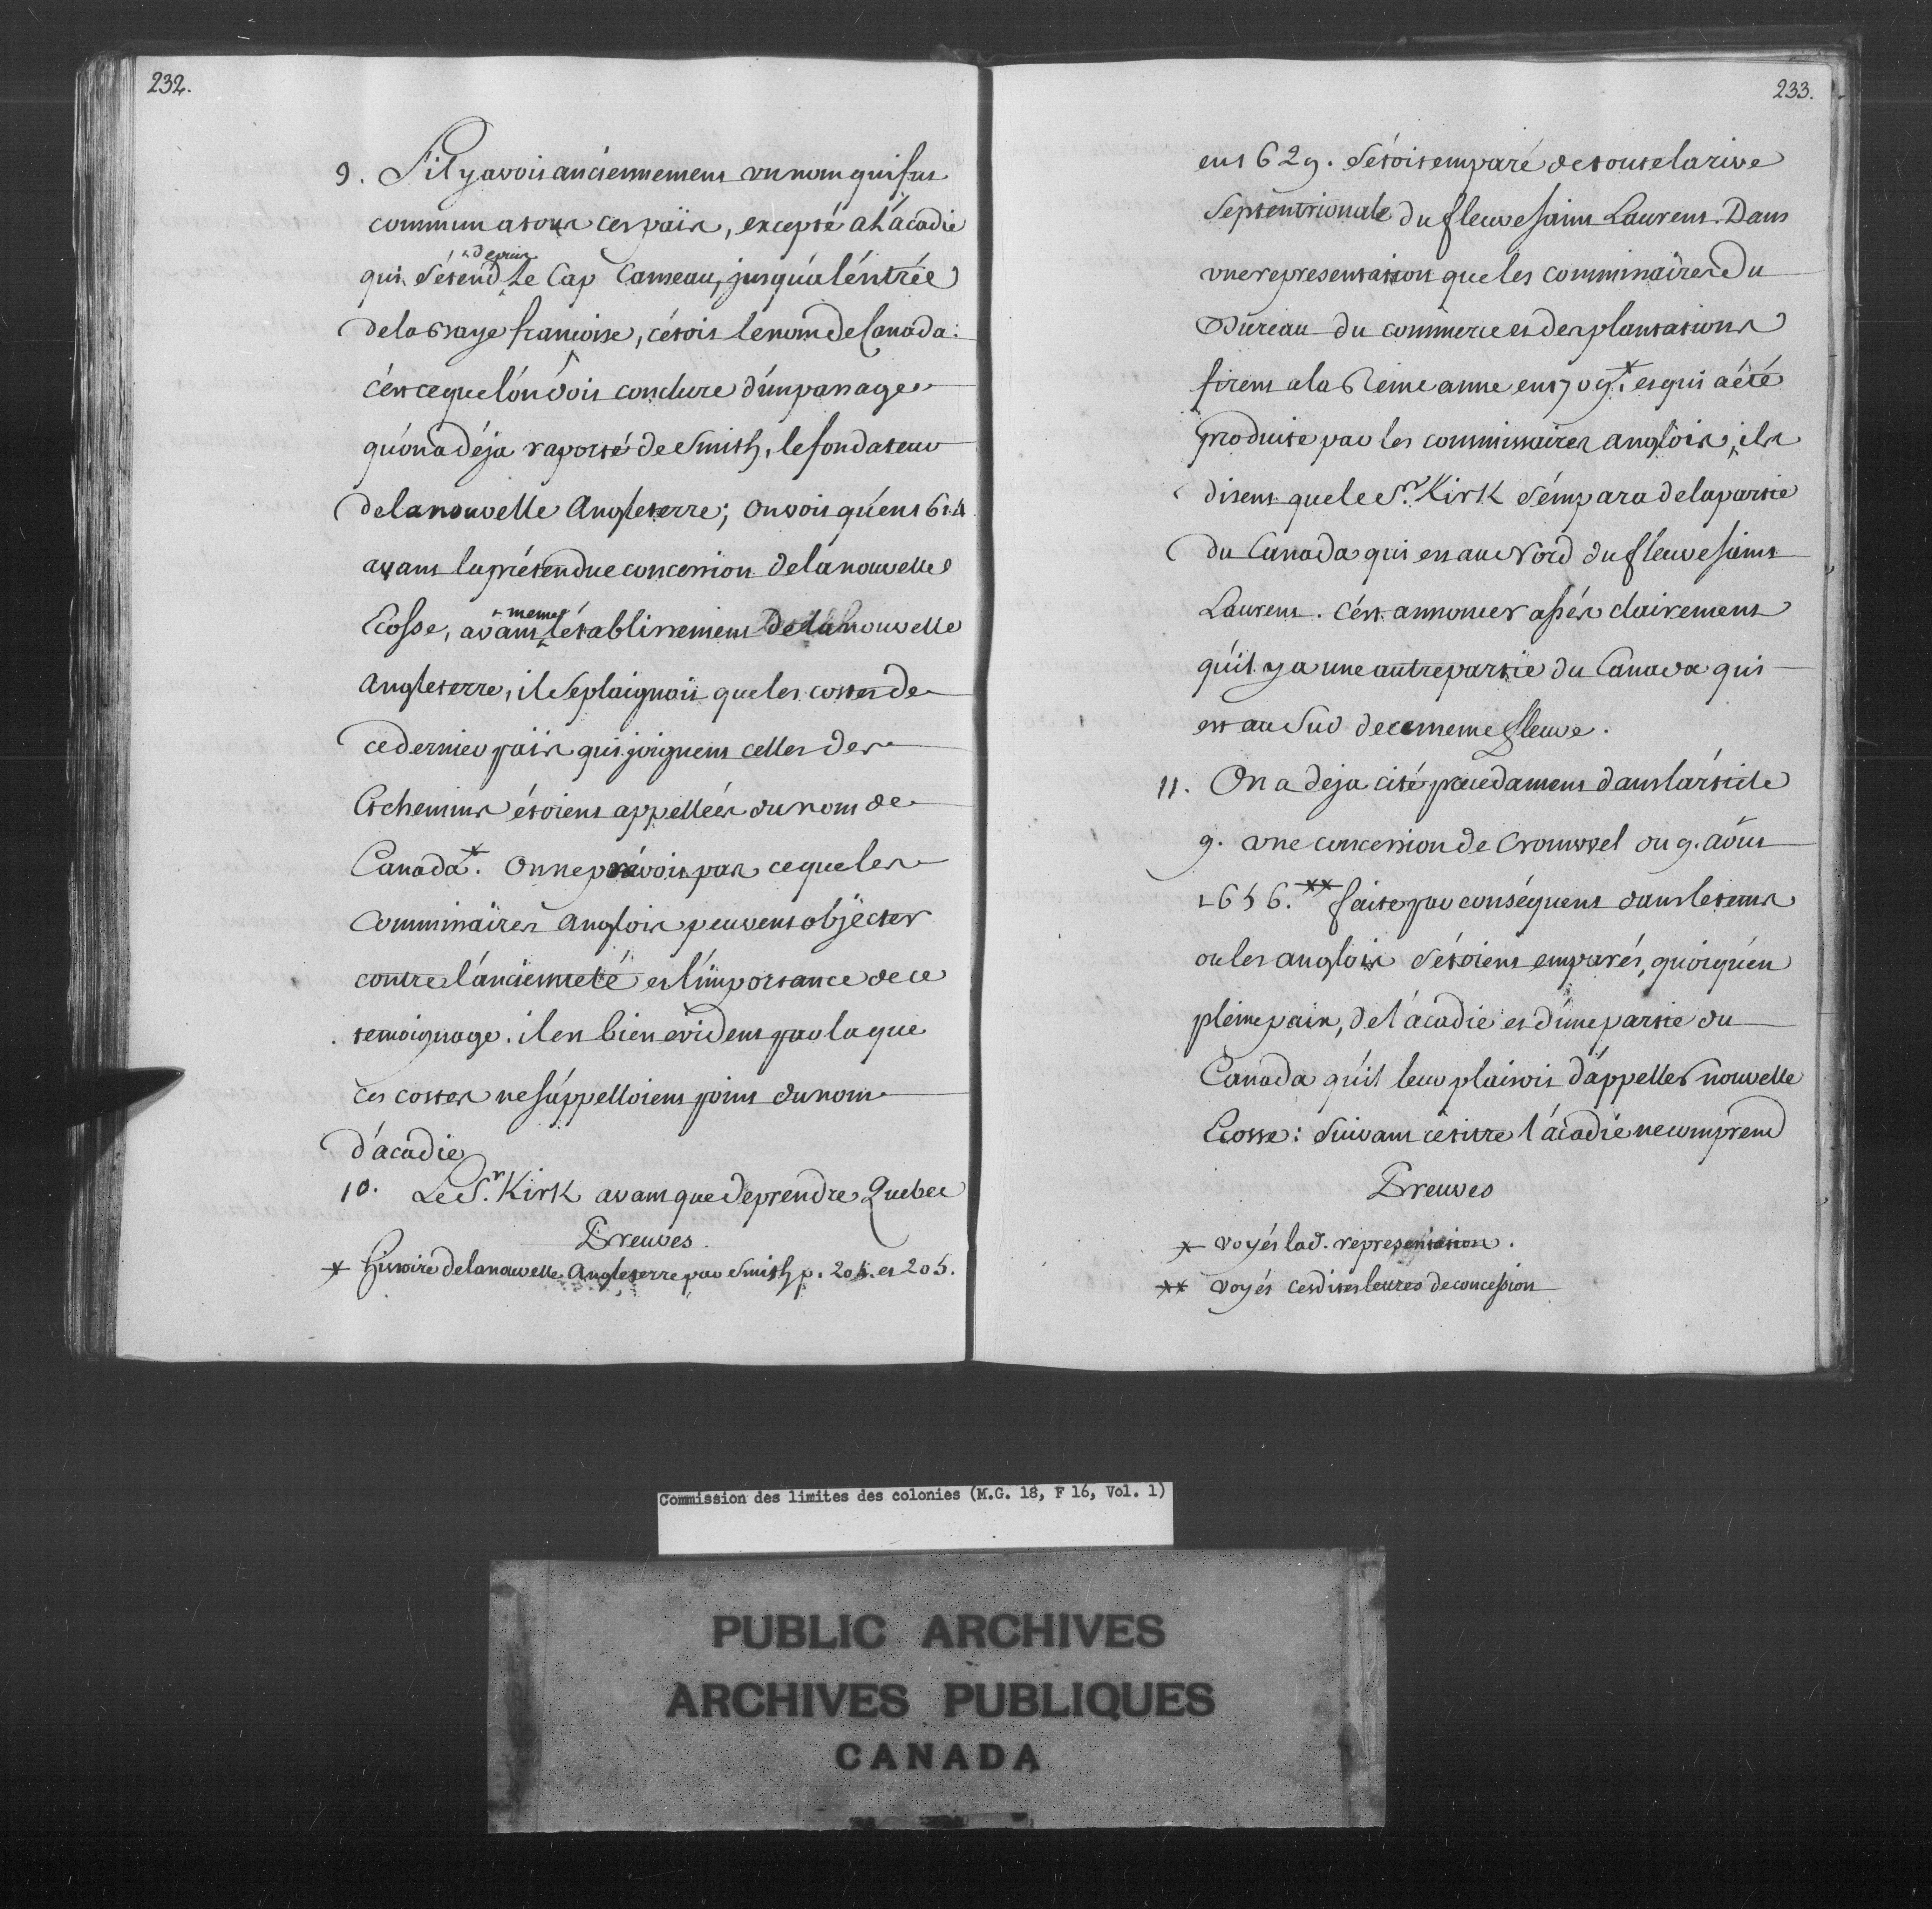 232.
9. S'il y avoit anciennement un nom qui fut
commun a tous ces païs, excepté a L'acadie
depuis
qui s'étend le Cap Canseau, jusqu'a l'éntrée
de la Baye francoise, c'étoit le nom de Canada.
c'ést ce que l'ón doit conclure d'un passage
qu'on a déja raporté de Smith, le fondateur
de la nouvelle Angleterre; on voit qu'en 1614
avant la prétendue concession de la nouvelle
meme
Ecosse, avant l'établissement de la nouvelle
Angleterre, il se plaignoit que les costes de
ce dernier païs qui joignent celles des
Etchemins étoient appellées du nom de
Canada.* On ne prévoit pas ce que les
Commissaires Anglois peuvent objécter
contre l'ancienneté et l'importance de ce
temoignage. il est bien evident par la que
ces costes ne s'áppelloient point du nom
d'acadie
10. Le Sr. Kirk avant que de prendre Quebec
Preuves.
* histoire de la nouvelle Angleterre par Smith p. 204. et 205.
233.
en 1629. s'étoit emparé de toute la rive
Septentrionale du fleuve saint Laurent. Dans
une representation que les commissaires du
Bureau du commerce et des plantations
firent a la Reine anne en 1709.* et qui a été
produite par les commissaires anglois, ils
disent que le Sr. Kirk s'émpara de la partie
du Canada qui est au Nord du fleuve saint
Laurent. C'ést annoncer assés clairement
qu'il y a une autre partie du Canada qui
est au Sud de ce meme fleuve.
11. On a deja cité precedament dans l'árticle
9. une concession de Cromwel du 9. aóut
1656.** faite par conséquent dans le tems
ou les anglois s'étoient emparés, quoiqu'én
pleine paix, de l'acadie et d'une partie du
Canada qu'il leur plaisoit d'áppeller nouvelle
Ecosse: suivant ce titre l'ácadie ne comprend
Preuves
* voyés lad. representation.
** voyés cesdites lettres de concession
Commission des limites des colonies (M.G. 18, F 16, Vol. 1)
PUBLIC ARCHIVES
ARCHIVES PUBLIQUES
CANADA